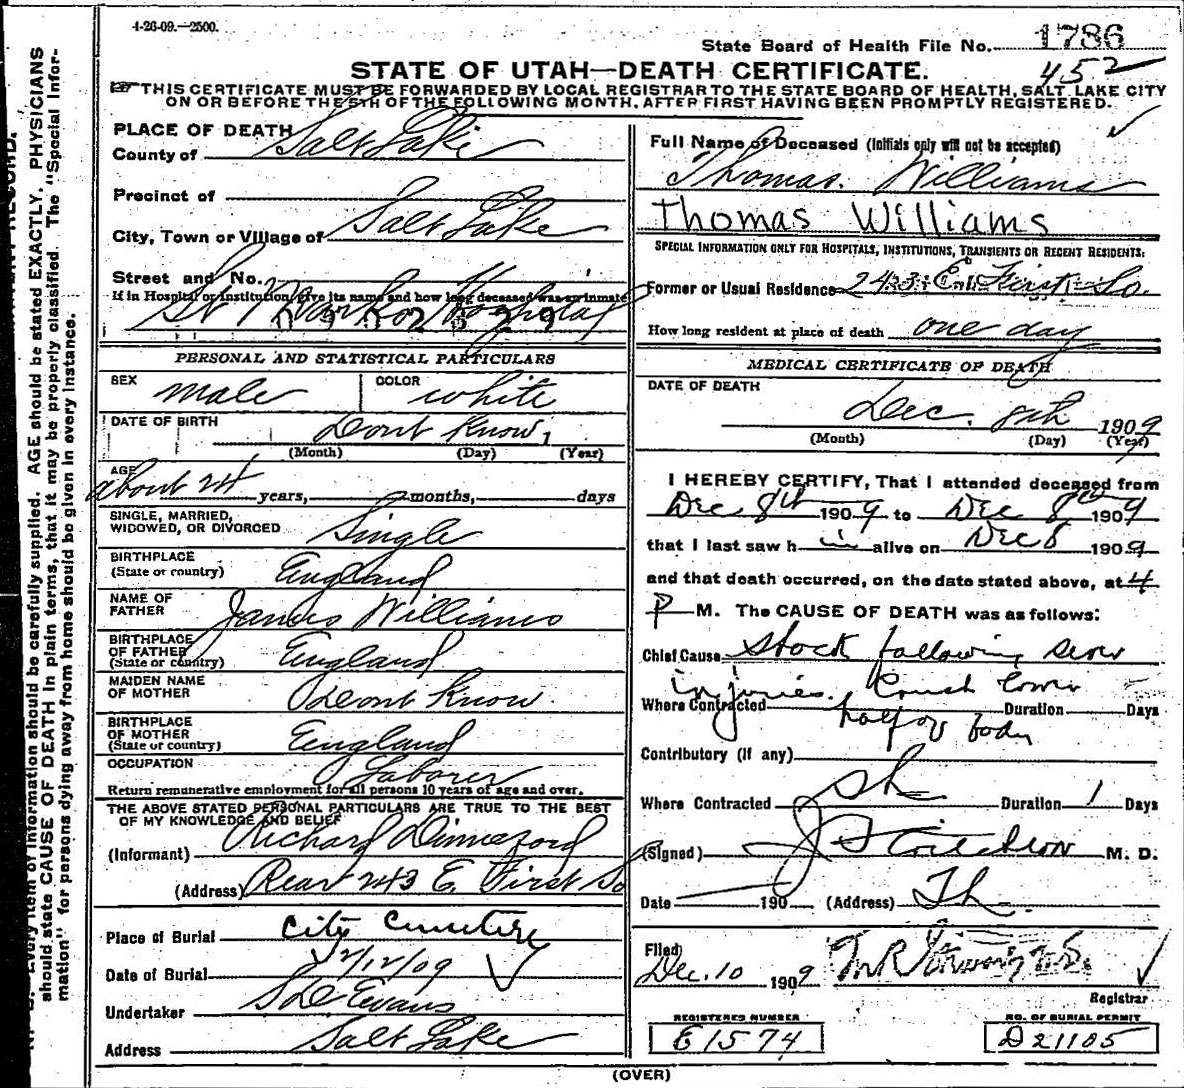 4-26-09.—2500.
State Board of Health File No. 1786
452
STATE OF UTAH—DEATH CERTIFICATE.
THIS CERTIFICATE MUST BE FORWARDED BY LOCAL REGISTRAR TO THE STATE BOARD OF HEALTH, SALT LAKE CITY
ON OR BEFORE THE 5TH OF THE FOLLOWING MONTH, AFTER FIRST HAVING BEEN PROMPTLY REGISTERED.
PLACE OF DEATH
County of Salt Lake
Precinct of
City, Town or Village of Salt Lake
Street and No.
If in Hospital or institution, give its name and how long deceased was an inmate
St Marks Hospital
PERSONAL AND STATISTICAL PARTICULARS
SEX male COLOR white
DATE OF BIRTH Dont Know
(Month) (Day) (Year)
AGE about 24 years, months, days
SINGLE, MARRIED,
WIDOWED, OR DIVORCED Single
BIRTHPLACE
(State or country) England
NAME OF
FATHER James Williams
BIRTHPLACE
OF FATHER
(State or country) England
MAIDEN NAME
OF MOTHER Dont Know
BIRTHPLACE
OF MOTHER
(State or country) England
OCCUPATION Laborer
Return remunerative employment for all persons 10 years of age and over.
THE ABOVE STATED PERSONAL PARTICULARS ARE TRUE TO THE BEST
OF MY KNOWLEDGE AND BELIEF
(Informant) Richard
(Address) Rear 243 E. First So
Place of Burial City Cemetery
Date of Burial 12/12/09
Undertaker Evans
Address Salt Lake
Full Name of Deceased (Initials only will not be accepted)
Thomas Williams
Thomas Williams
SPECIAL INFORMATION ONLY FOR HOSPITALS, INSTITUTIONS, TRANSIENTS OR RECENT RESIDENTS:
Former or Usual Residence 243 E. First So.
How long resident at place of death one day
MEDICAL CERTIFICATE OF DEATH
DATE OF DEATH
Dec. 8th 1909
(Month) (Day) (Year)
I HEREBY CERTIFY, That I attended deceased from
Dec 8th 1909 to Dec 8th 1909
that I last saw him alive on Dec 8 1909
and that death occurred, on the date stated above, at 4
P M. The CAUSE OF DEATH was as follows:
Chief Cause Shock following severe
injuries. Crush lower
Where Contracted Duration Days
half of body
Contributory (if any)
Where Contracted Duration 1 Days
(Signed) M. D.
Date 190 (Address)
Filed
Dec. 10 1909
Registrar
REGISTERED NUMBER
E1574
NO. OF BURIAL PERMIT
D21105
(OVER)
Every item of information should be carefully supplied. AGE should be stated EXACTLY. PHYSICIANS
should state CAUSE OF DEATH in plain terms, that it may be properly classified. The "Special Infor-
mation" for persons dying away from home should be given in every instance.